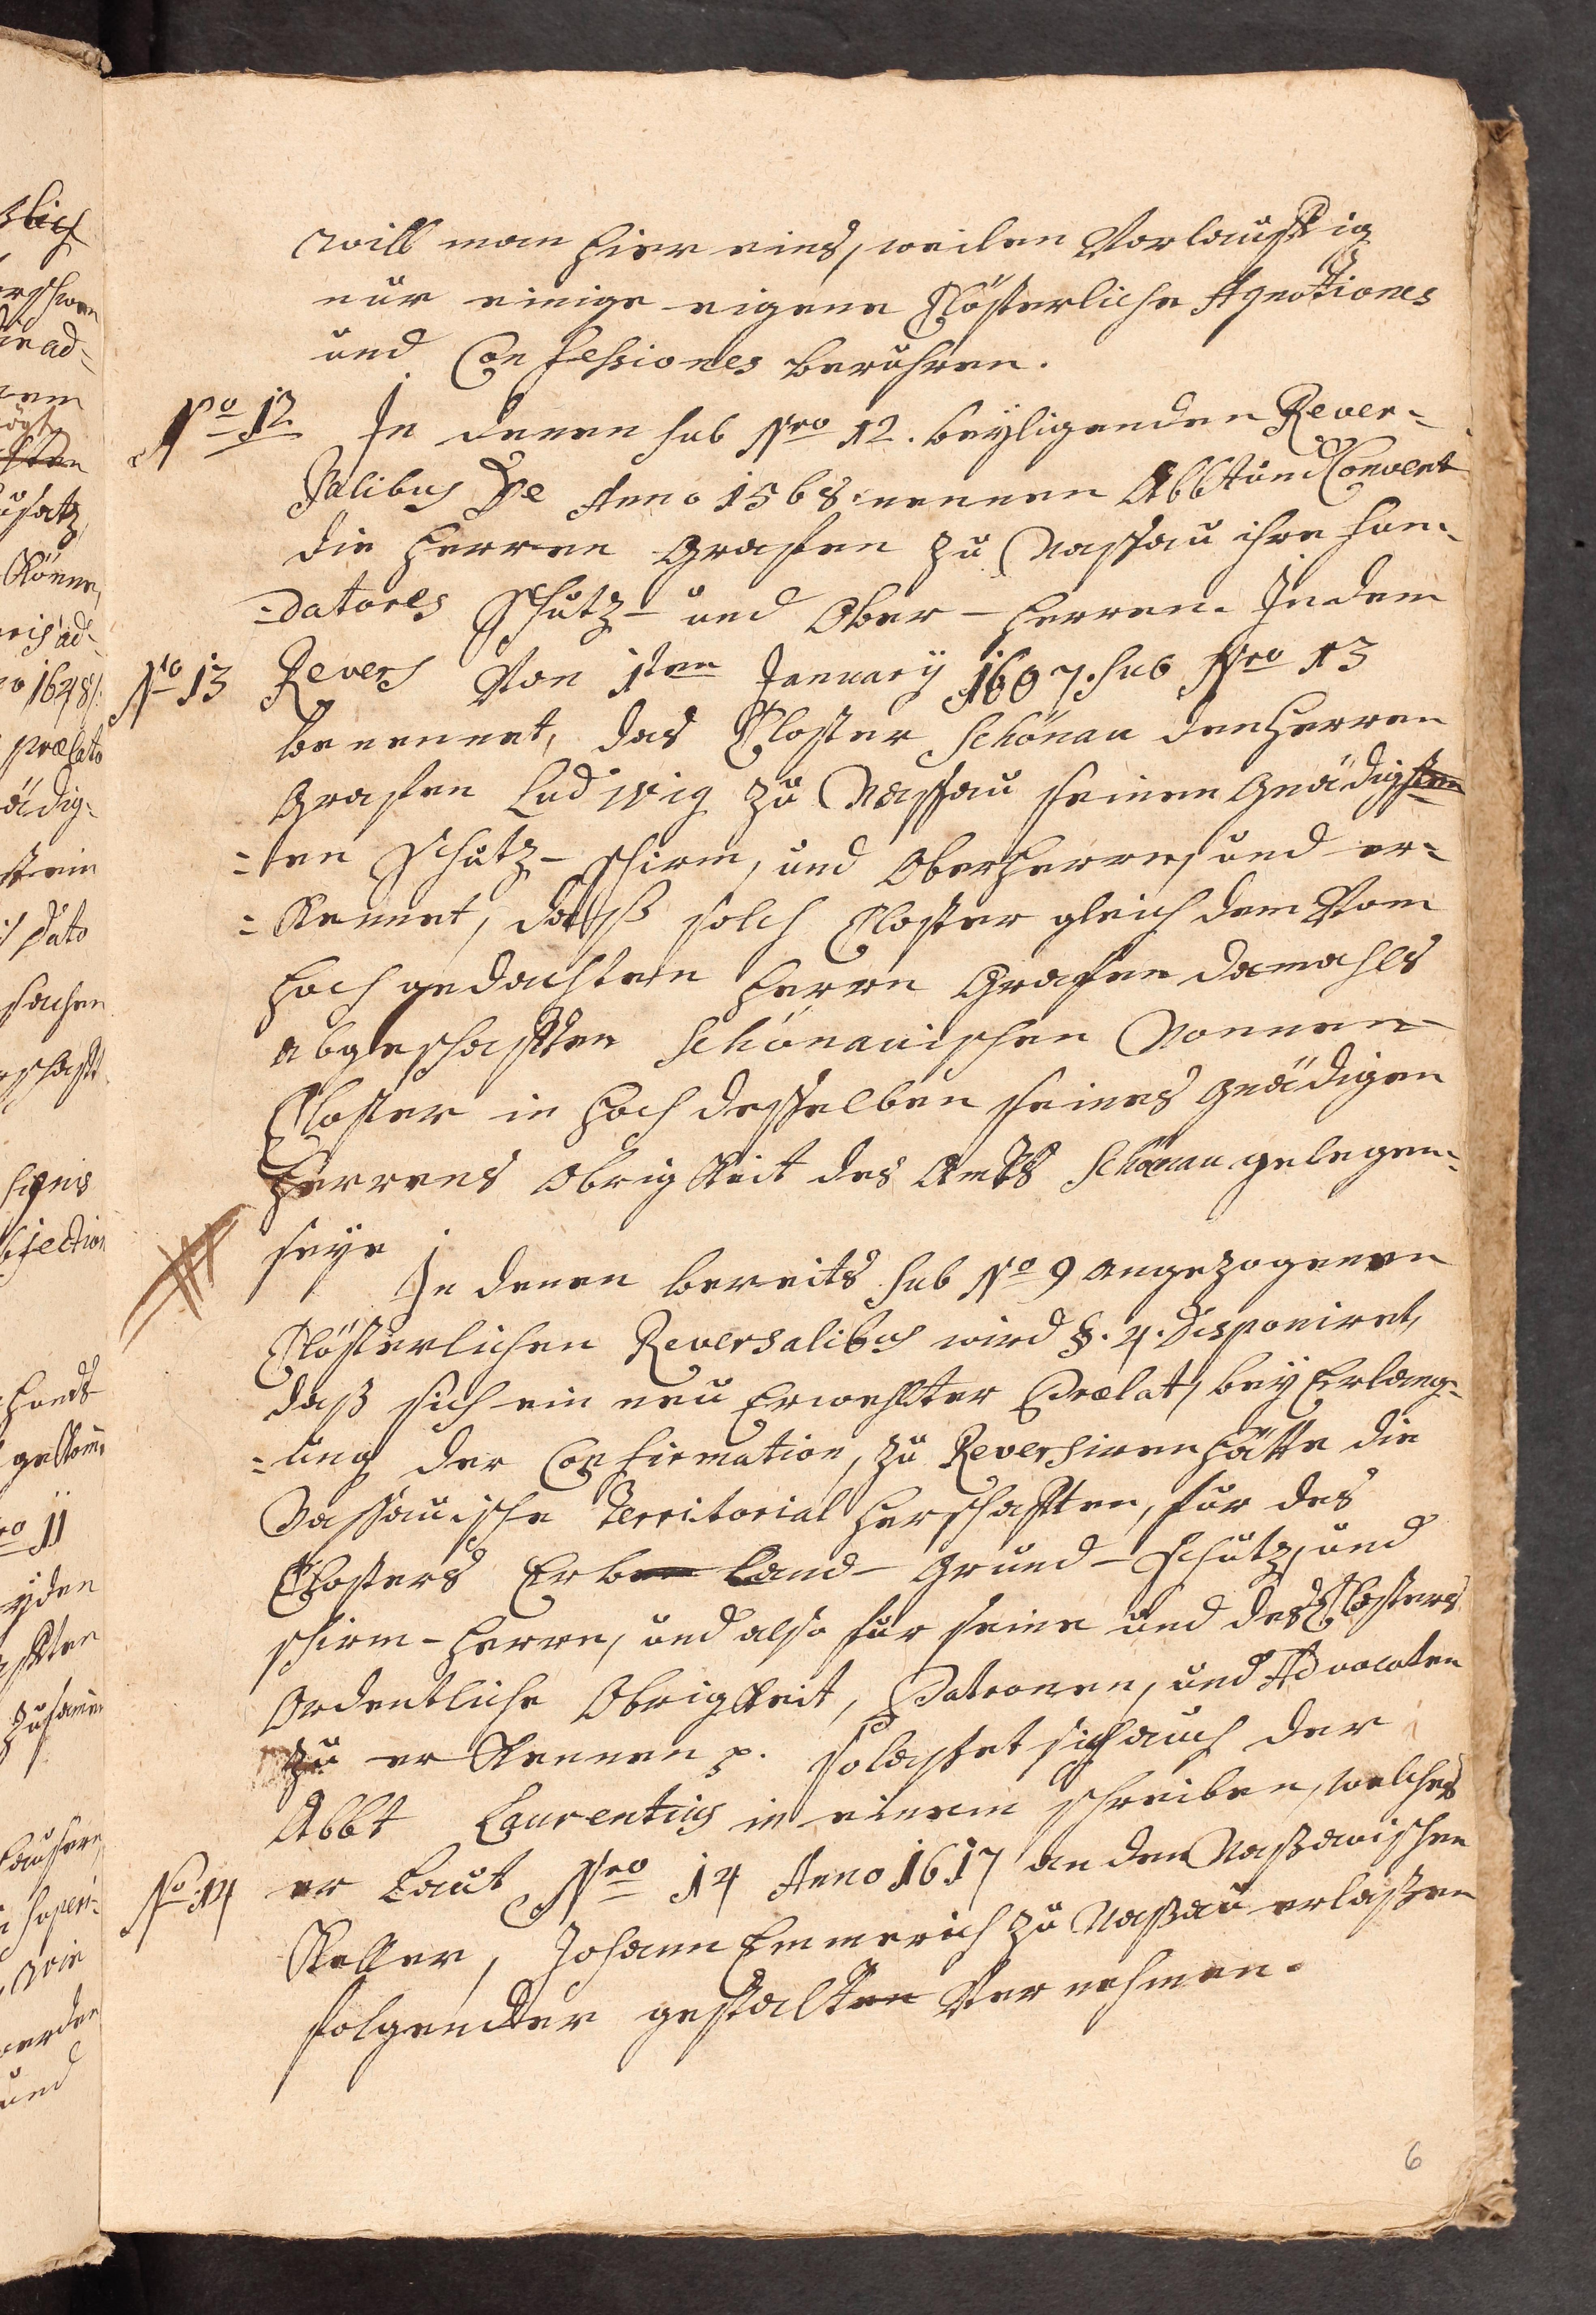 will man hier eins, weilen Vorlauffig
nur einige eigene Clösterliche Agnotiones
und Confessiones berühren.
No 12 In denen sub Nro 12. beÿligenden Rever-
salibus De Anno 1568. nennen Abbt und Convent
die Herren Grafen zu Nassau ihre fun-
-datores Schutz- und Ober-Herren. In dem
No 13 Revers Von 1ten Januarÿ 1607. sub Nro 13
benennet, das Closter Schönau den Herren
Grafen Ludwig zu Nassau seinen Gnädigsten
=ten Schutz- Schirm, und Oberherrn, und er-
=kennet, daß solch Closter gleich dem Vom
Hochgedachten Herrn Grafen damahls
abgeschafften Schönauischen Nonnen
Closter in Hoch desselben seines Gnädigen
Herrens Obrigkeit des Ambts Schönau gelegen
seÿe
In denen bereits sub No 9 angezogenen
Clösterlichen Reversalibus wird §. 4. Disponiret,
daß sich ein neu Erwehlter Prælat, beÿ Erlang-
=ung der Confirmation, zu Reversiren hätte die
Nassauische Territorial Herschafften, für des
Closters Erb Land- Grund- Schutz, und
Schirm-Herrn, und also für seine und des Closters
Ordentliche Obrigkeit, Patronen, und Advocaten
zu erkennen p. so lasset sich auch der
Abbt Laurentius in einem schreiben, welches
No 14 er Laut Nro 14 Anno 1617 an den Naßauischen
Keller, Johann Emmerich zu Naßau erlaßen
folgender gestalten Vernehmen.
6